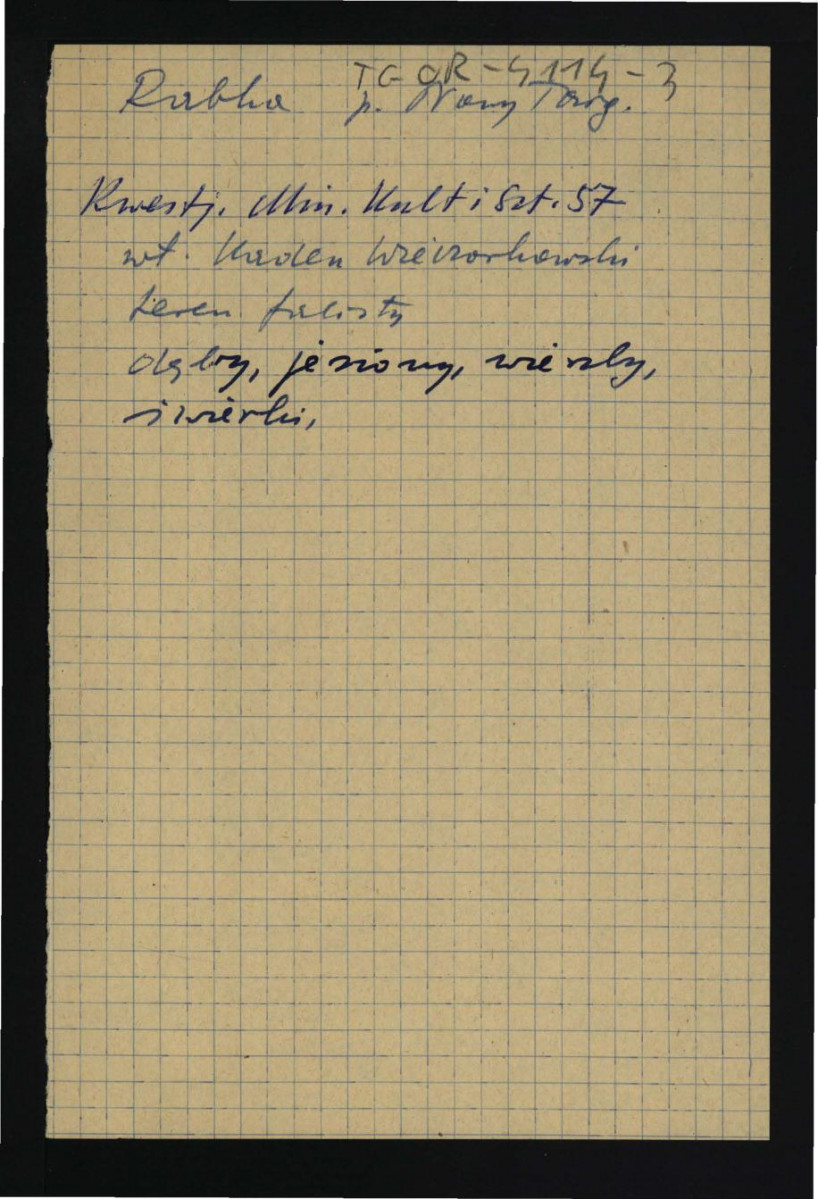 TG OR-4114-3
Rabka p. Nowy Targ.
Kwestj. Min. Kult i Szt. 57
wł. Kaden Wieczorkowski
teren falisty
dęby, jesiony, wierzby,
świerki,